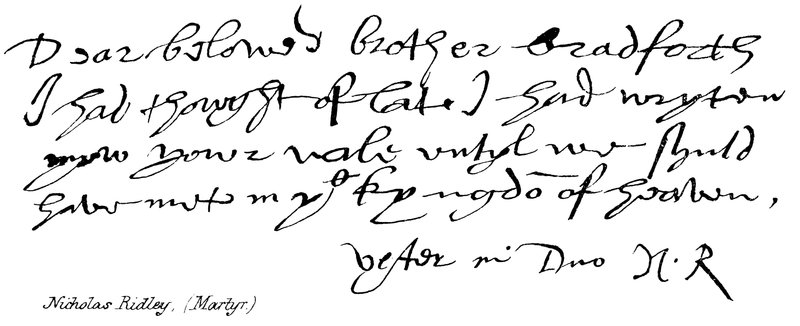 Dear beloved brother Bradforth
I had thowght of late I had wryten
unto yowr vale untyl we shuld
have mete in yᵉ kyngdō of heaven,
vester in Dno N. R
Nicholas Ridley, (Martyr.)